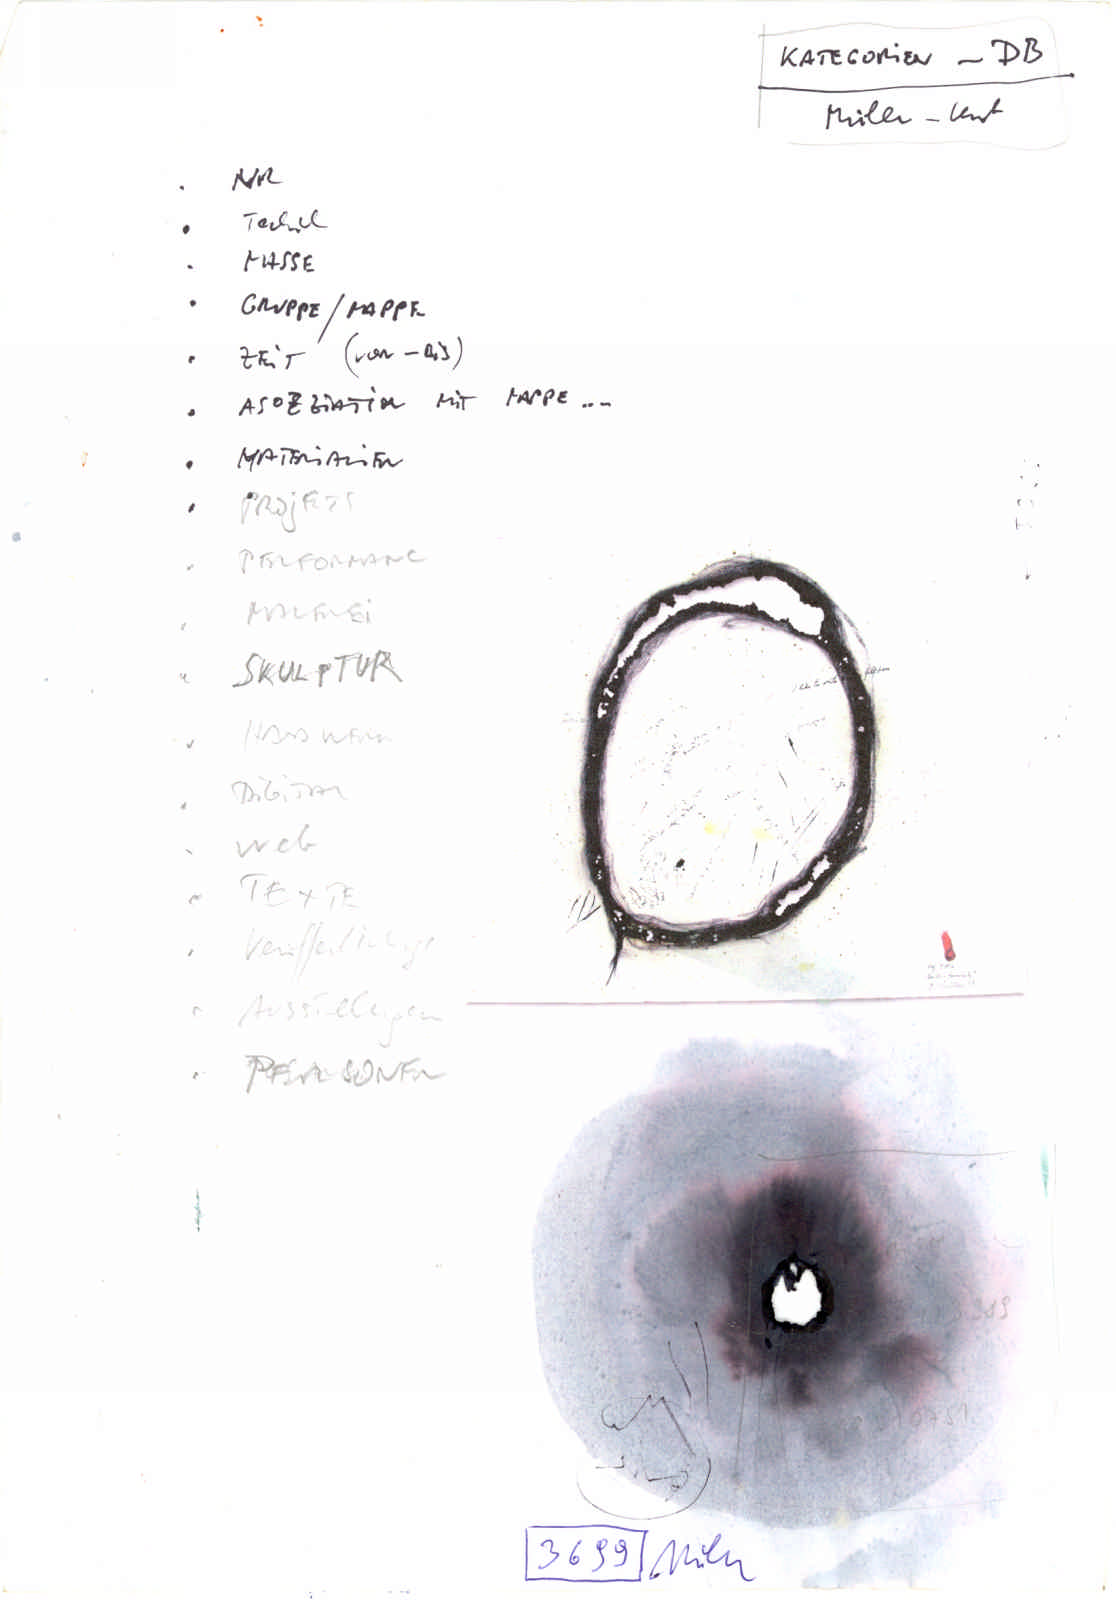 KATEGORIEN – DB
NR
Technik
MASSE
GRUPPE/MAPPE
ZEIT (von – BIS)
ASOZZIATION MIT MAPPE ...
MATERIALIEN
PROJEKTE
PERFORMANC
MALEREI
SKULPTUR
DIGITAL
web
TEXTE
Veröffentlichunge
Ausstellungen
PERSONEN
3699